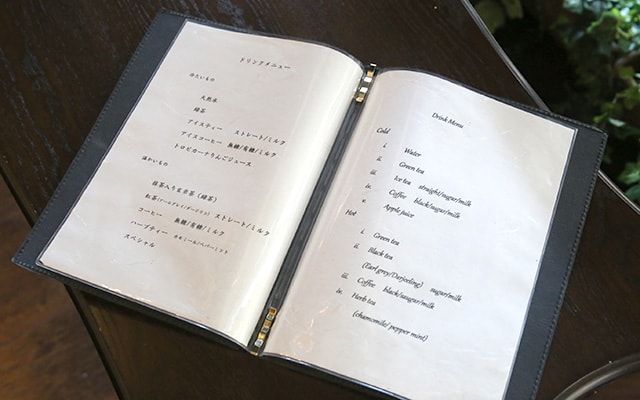 ドリンクメニュー
冷たいもの
天然水
緑茶
アイスティー ストレート/ミルク
アイスコーヒー 無糖/有糖/ミルク
トロピカーナりんごジュース
温かいもの
抹茶入り玄米茶(緑茶)
紅茶(アールグレイ/ダージリン) ストレート/ミルク
コーヒー 無糖/有糖/ミルク
ハーブティー カモミール/ペパーミント
スペシャル
Drink Menu
Cold
i. Water
ii. Green tea
iii. Ice tea straight/sugar/milk
iv. Coffee black/sugar/milk
v. Apple juice
Hot
i. Green tea
ii. Black tea
(Earl grey/Darjeeling) sugar/milk
iii. Coffee black/saugar/milk
iv. Herb tea
(chamomile/ pepper mint)